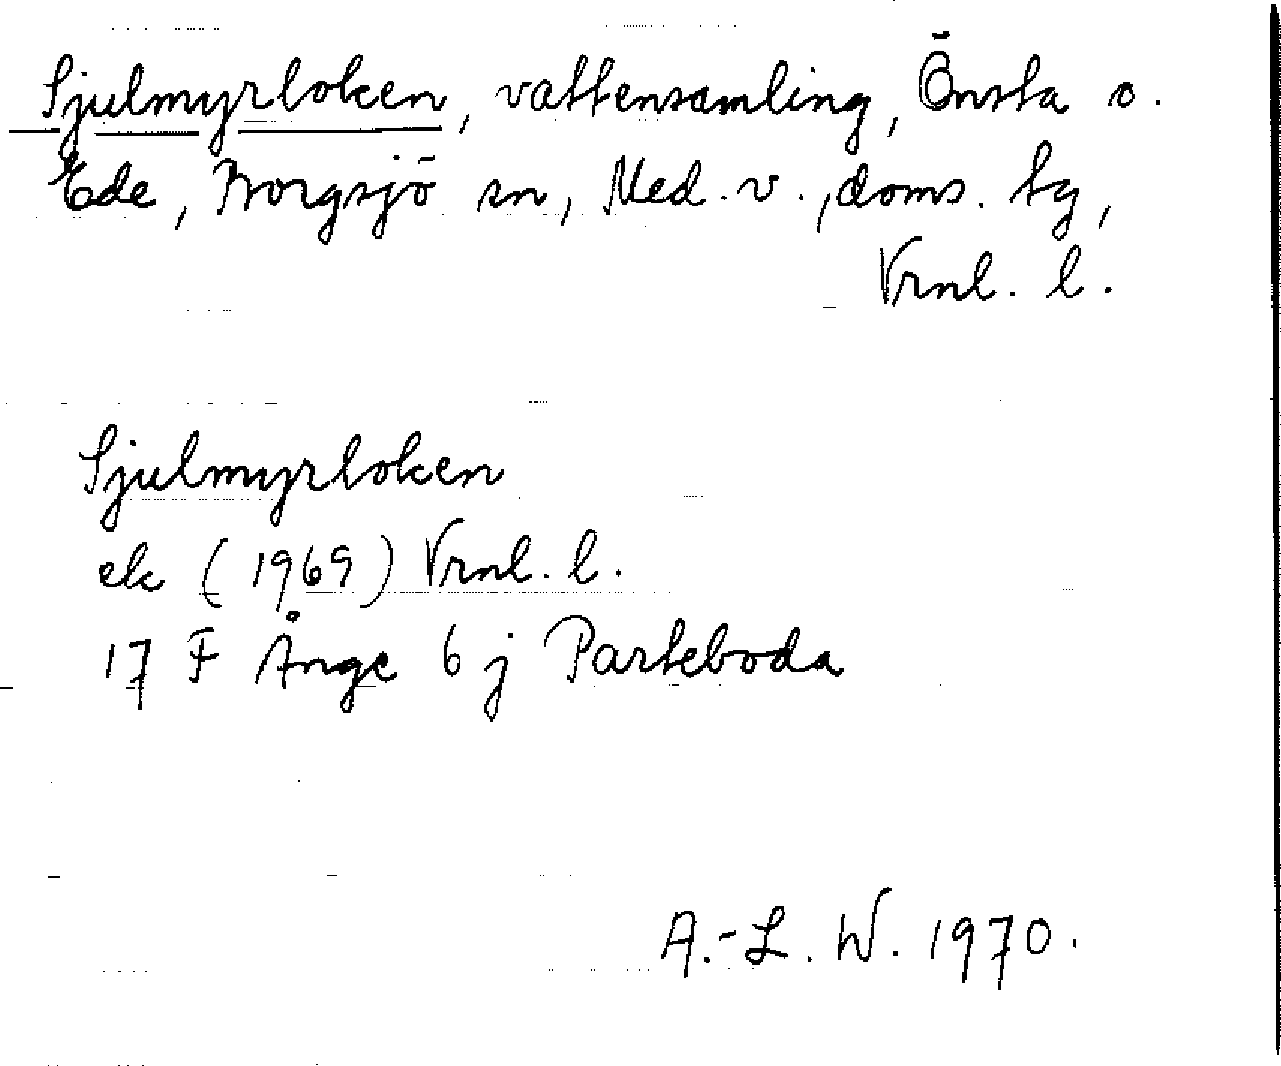 Sjulmyrloken, vattensamling, Önsta o.
Ede, Borgsjö sn, Med. v., doms. tg,
Vrnl. l.
Sjulmyrloken
ek (1969) Vrnl. l.
17 F Ånge 6 j Parteboda
A.-L. W. 1970.